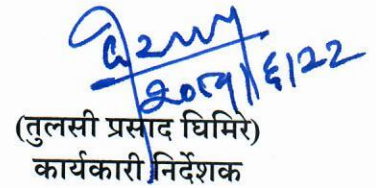 २०८१/६/२२
(तुलसी प्रसाद घिमिरे)
कार्यकारी निर्देशक